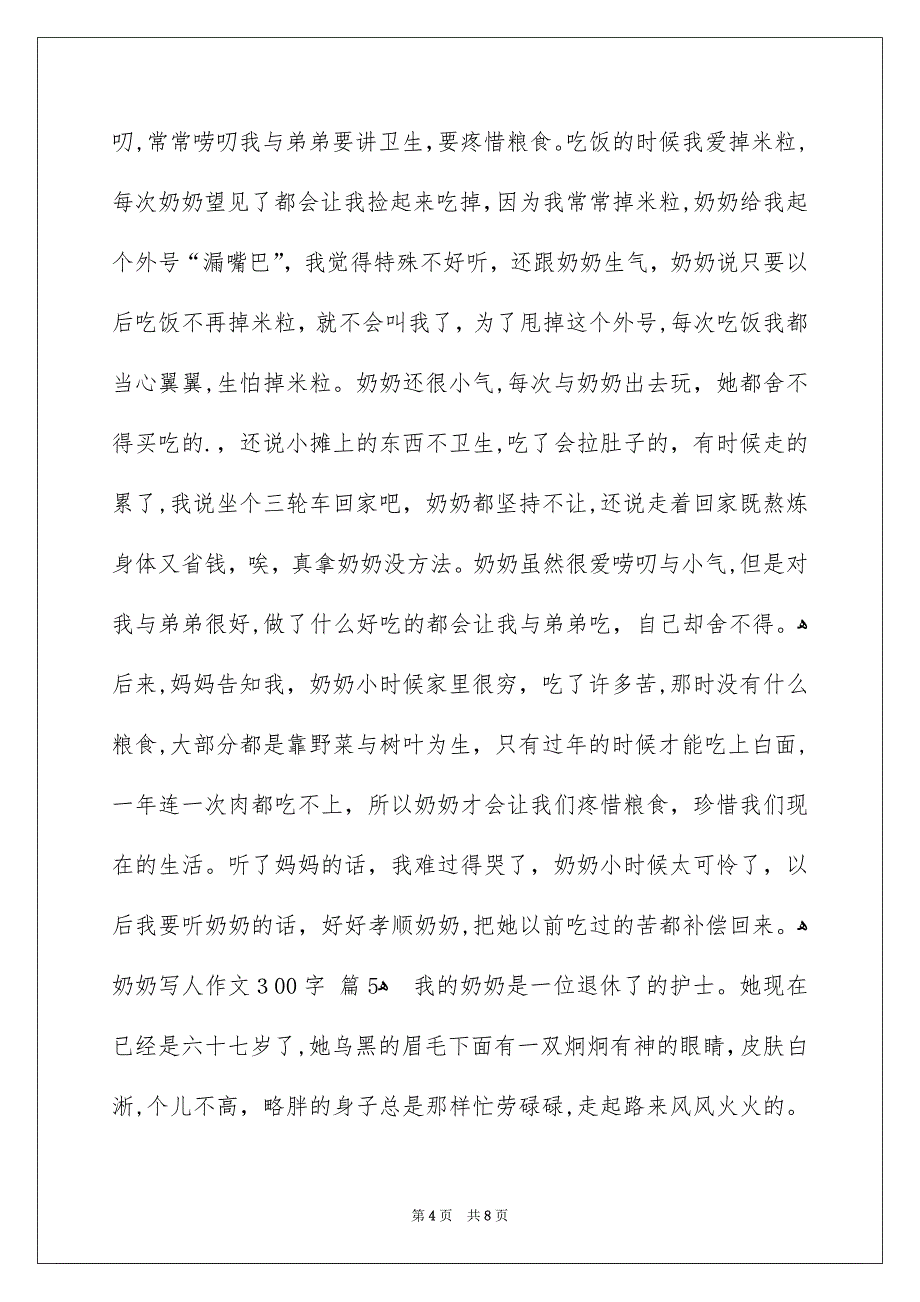 叨,常常唠叨我与弟弟要讲卫生，要疼惜粮食。吃饭的时候我爱掉米粒,
每次奶奶望见了都会让我捡起来吃掉，因为我常常掉米粒,奶奶给我起
个外号“漏嘴巴”，我觉得特殊不好听，还跟奶奶生气，奶奶说只要以
后吃饭不再掉米粒，就不会叫我了，为了甩掉这个外号,每次吃饭我都
当心翼翼,生怕掉米粒。奶奶还很小气,每次与奶奶出去玩，她都舍不
得买吃的.，还说小摊上的东西不卫生,吃了会拉肚子的，有时候走的
累了,我说坐个三轮车回家吧，奶奶都坚持不让,还说走着回家既熬炼
身体又省钱，唉，真拿奶奶没方法。奶奶虽然很爱唠叨与小气,但是对
我与弟弟很好,做了什么好吃的都会让我与弟弟吃，自己却舍不得。ﻫ
后来,妈妈告知我，奶奶小时候家里很穷，吃了许多苦,那时没有什么
粮食,大部分都是靠野菜与树叶为生，只有过年的时候才能吃上白面,
一年连一次肉都吃不上，所以奶奶才会让我们疼惜粮食，珍惜我们现
在的生活。听了妈妈的话，我难过得哭了，奶奶小时候太可怜了，以
后我要听奶奶的话，好好孝顺奶奶,把她以前吃过的苦都补偿回来。ﻫ
奶奶写人作文300字 篇5ﻫ　我的奶奶是一位退休了的护士。她现在
已经是六十七岁了,她乌黑的眉毛下面有一双炯炯有神的眼睛，皮肤白
淅,个儿不高，略胖的身子总是那样忙劳碌碌,走起路来风风火火的。
第4页 共8页